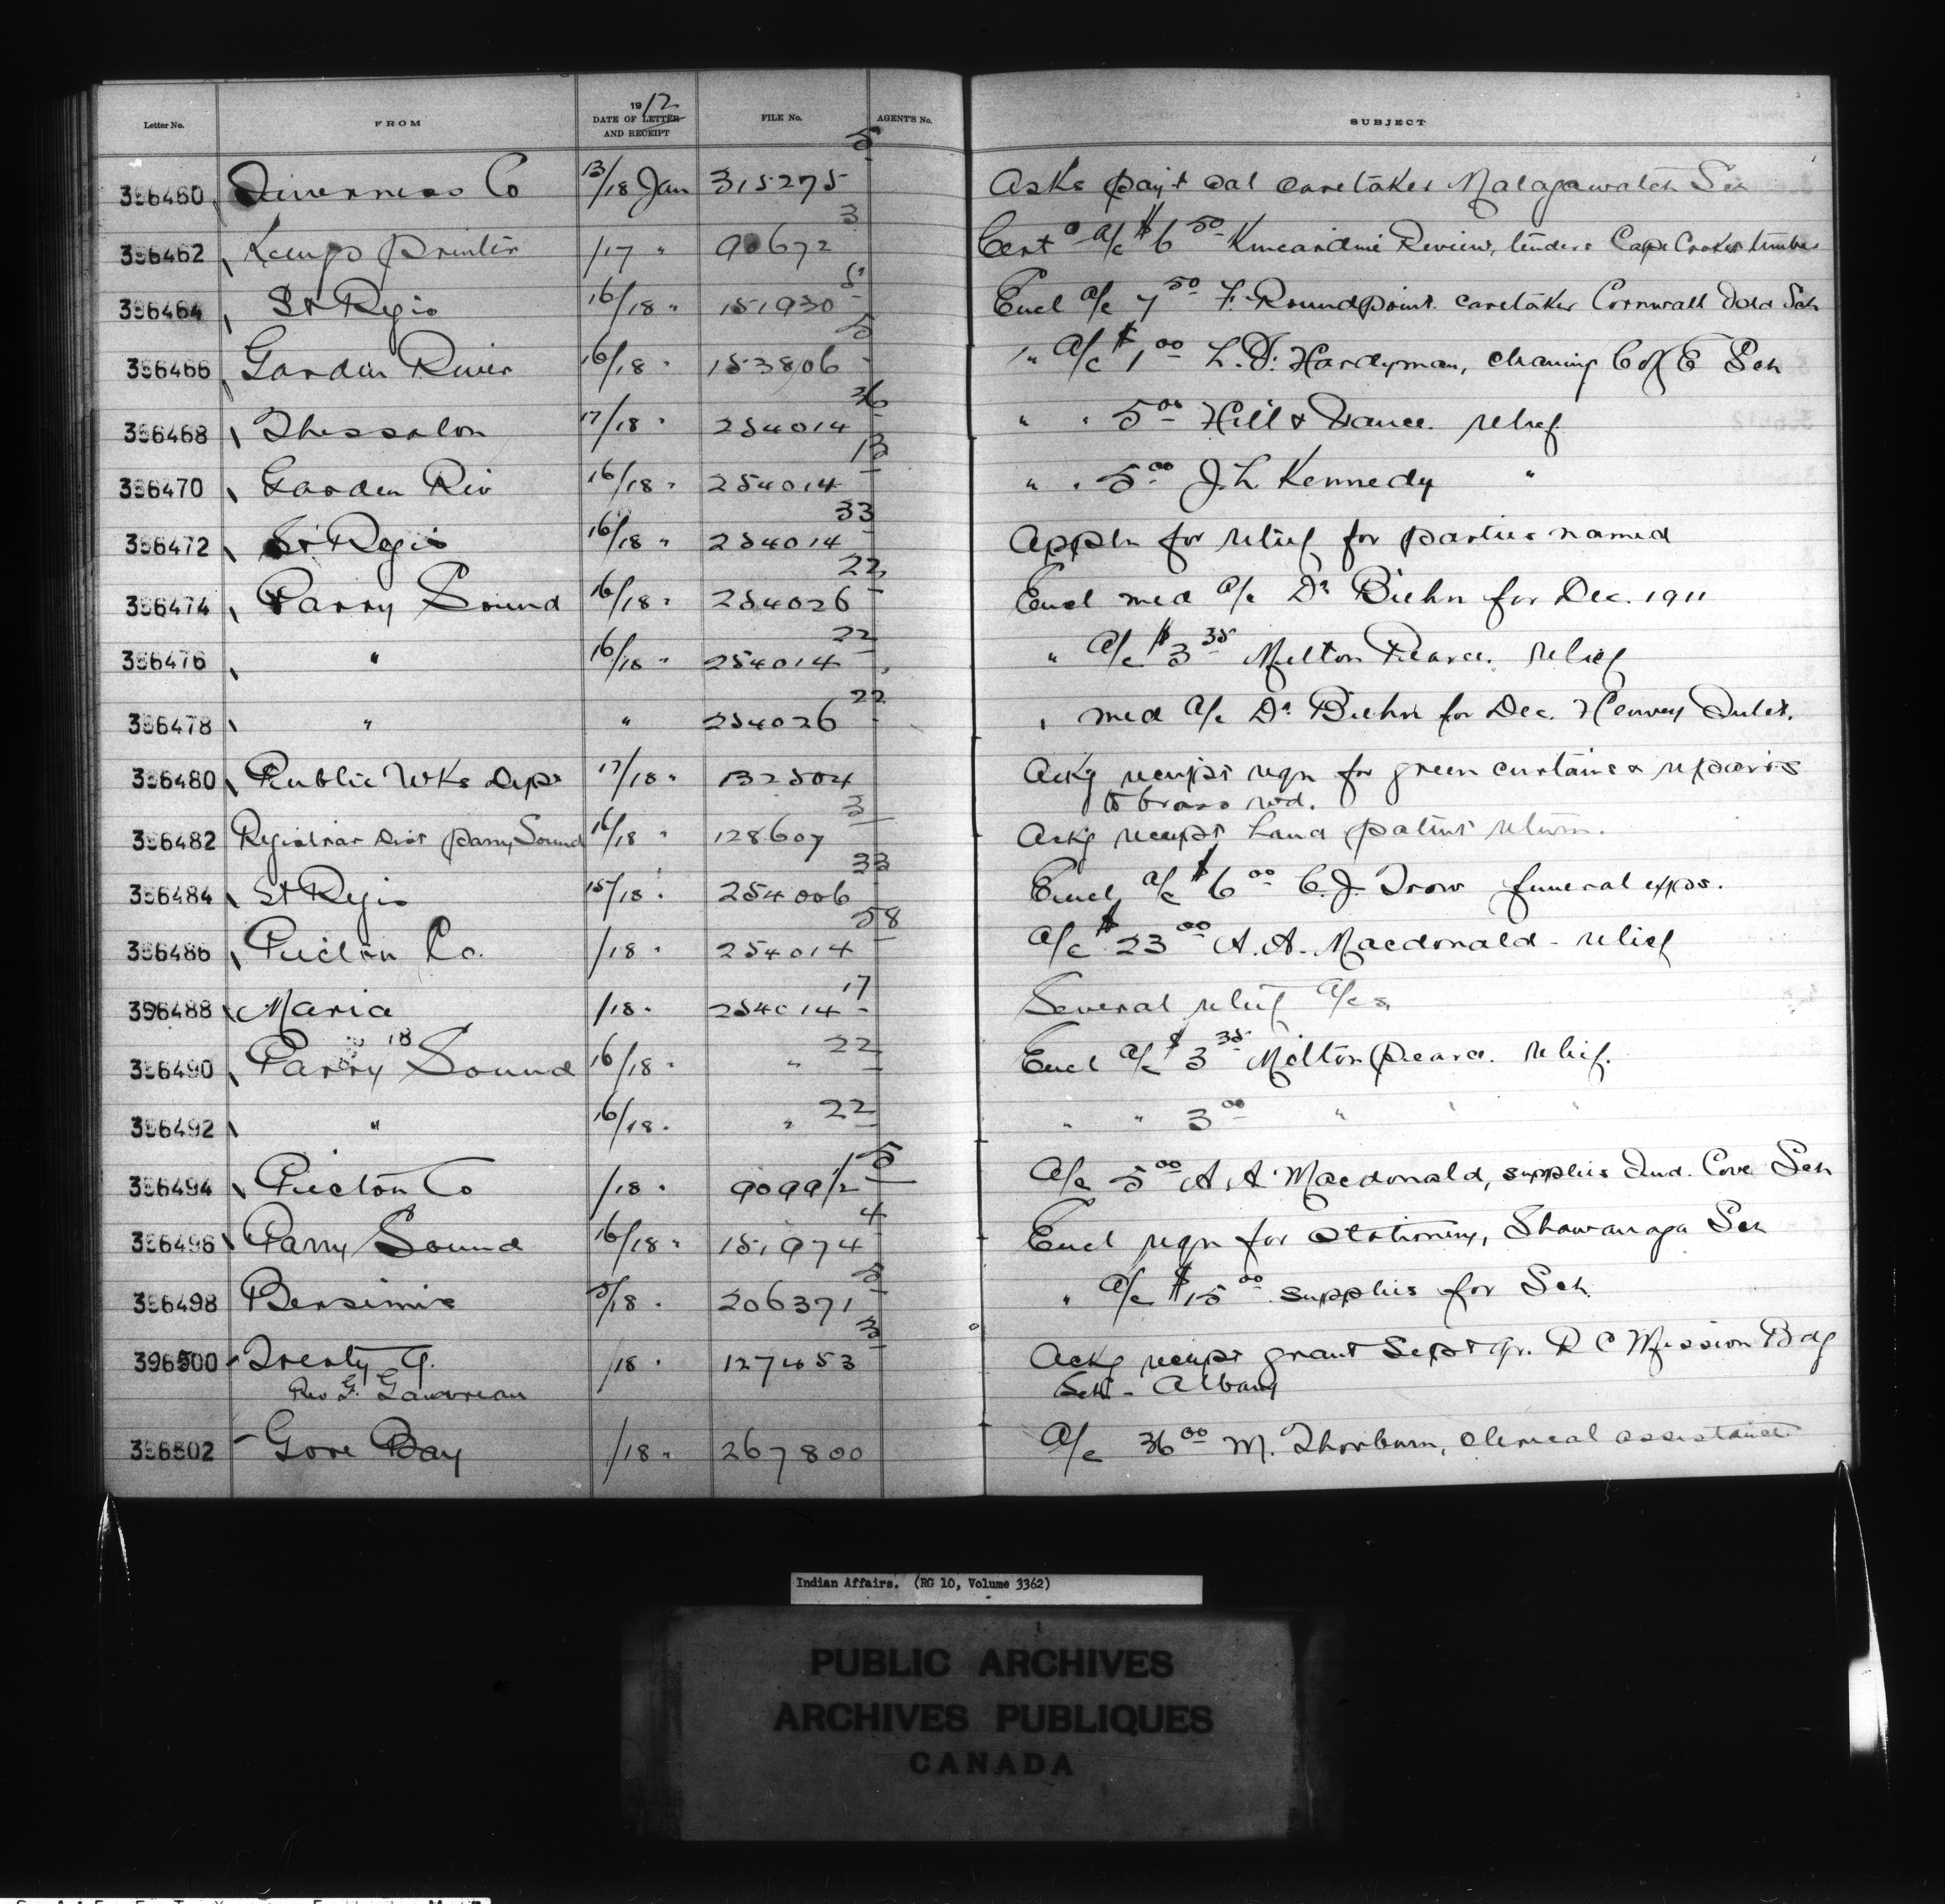 Letter No. FROM 1912 DATE OF LETTER AND RECEIPT FILE No. AGENT'S No. SUBJECT
396460 Inverness Co 13/18 Jan 315275 5 Asks payt sal caretaker Malagawatch Sch
396462 Kings Printer /17 " 90672 3 Cert o a/c $6 50 Kincardine Review, tenders Cape Croker timber
396464 St Regis 16/18 " 151930 5 Encl a/c 7 50 F. Roundpoint. caretaker Cornwall Isld Sch
396466 Garden River 16/18 " 153806 5 " a/c $1 00 L. F. Hardyman, cleaning C of E Sch
396468 Thessalon 17/18 " 254014 36 " " 5 00 Hill & Vance. relief
396470 Garden Riv 16/18 " 254014 13 " " 5 00 J. L Kennedy "
396472 St Regis 16/18 " 254014 33 Appln for relief for parties named
396474 Parry Sound 16/18 " 254026 22 Encl med a/c Dr Biehn for Dec. 1911
396476 " 16/18 " 254014 22 " a/c $3 35 Milton Pearce. relief
396478 " " 254026 22 " med a/c Dr Biehn for Dec. Henvey Inlet.
396480 Public Wks Dept 17/18 " 132504 Ackg receipt reqn for green curtains & repairs
to brass rod.
396482 Registrar Dist Parry Sound 16/18 " 128607 3 Ackg receipt Land patent return.
396484 St Regis 15/18 " 254006 33 Encl a/c $6 00 C. J. Trow funeral expns.
396486 Pictou Co. /18 " 254014 58 a/c $23 00 A. A. Macdonald - relief
396488 Maria /18 " 254014 17 Several relief a/cs
396490 Parry 18 Sound 16/18 " " 22 Encl a/c $3 35 Milton Pearce. relief.
396492 " 16/18 " " 22 " " 3 00 " " "
396494 Pictou Co /18 " 9099/2 5 a/c 5 00 A A Macdonald, supplies Ind. Cove Sch
396496 Parry Sound 16/18 " 151974 4 Encl reqn for stationery, Shawanaga Sch
396498 Bersimis 5/18 " 206371 5 " a/c $15 00 supplies for Sch
396500 Treaty 9. /18 " 127453 3 Ackg receipt grant Sept qr. R C Mission Bdg
Rev F. Gauvreau Sch - Albany
396502 Gore Bay /18 " 267800 a/c 36 00 M. Thorburn, clerical assistance
Indian Affairs. (RG 10, Volume 3362)
PUBLIC ARCHIVES
ARCHIVES PUBLIQUES
CANADA